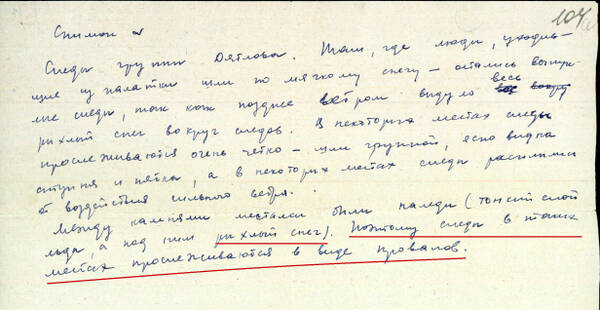 104
Снимок
Следы группы Дятлова. Там, где люди, уходив-
шие из палатки шли по мягкому снегу – остались выпук-
лые следы, так как позднее ветром выдуло весь
рыхлый снег вокруг следов. В некоторых местах следы
прослеживаются очень четко – шли группой, ясно видна
ступня и пятка, а в некоторых местах следы расплылись
от воздействия сильного ветра.
Между камнями местами были наледи (тонкий слой
льда, а под ним рыхлый снег). Поэтому следы в таких
местах прослеживаются в виде провалов.